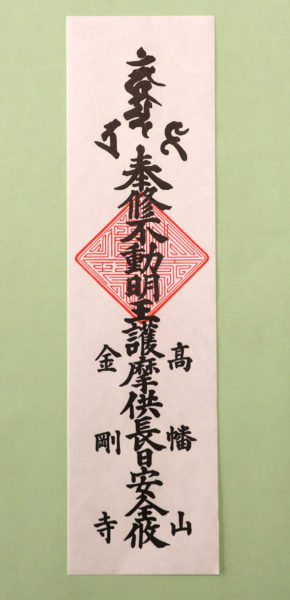 奉修不動明王護摩供長日安全攸
髙幡山
金剛寺